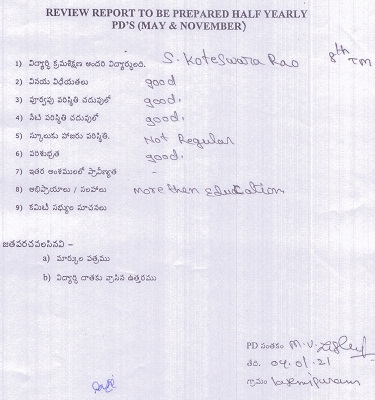 REVIEW REPORT TO BE PREPARED HALF YEARLY
PD'S (MAY & NOVEMBER)
8th TM
1) విద్యార్థి క్రమశిక్షణ అందరి విద్యార్థులది. S. Koteswara Rao
2) వినయ విధేయతలు good
3) పూర్వపు పరిస్థితి చదువులో good.
4) నేటి పరిస్థితి చదువులో good.
5) స్కూలుకు హాజరు పరిస్థితి. Not Regular
6) పరిశుభ్రత good.
7) ఇతర అంశములలో ప్రావీణ్యత -
8) అభిప్రాయాలు / సలహాలు more then Education
9) కమిటి సభ్యుల సూచనలు
జతపరచవలసినవి –
a) మార్కుల పత్రము
b) విద్యార్థి దాతకు వ్రాసిన ఉత్తరము
PD సంతకం M.V.
తేది. 04.01.21
గ్రామం Laxmipuram